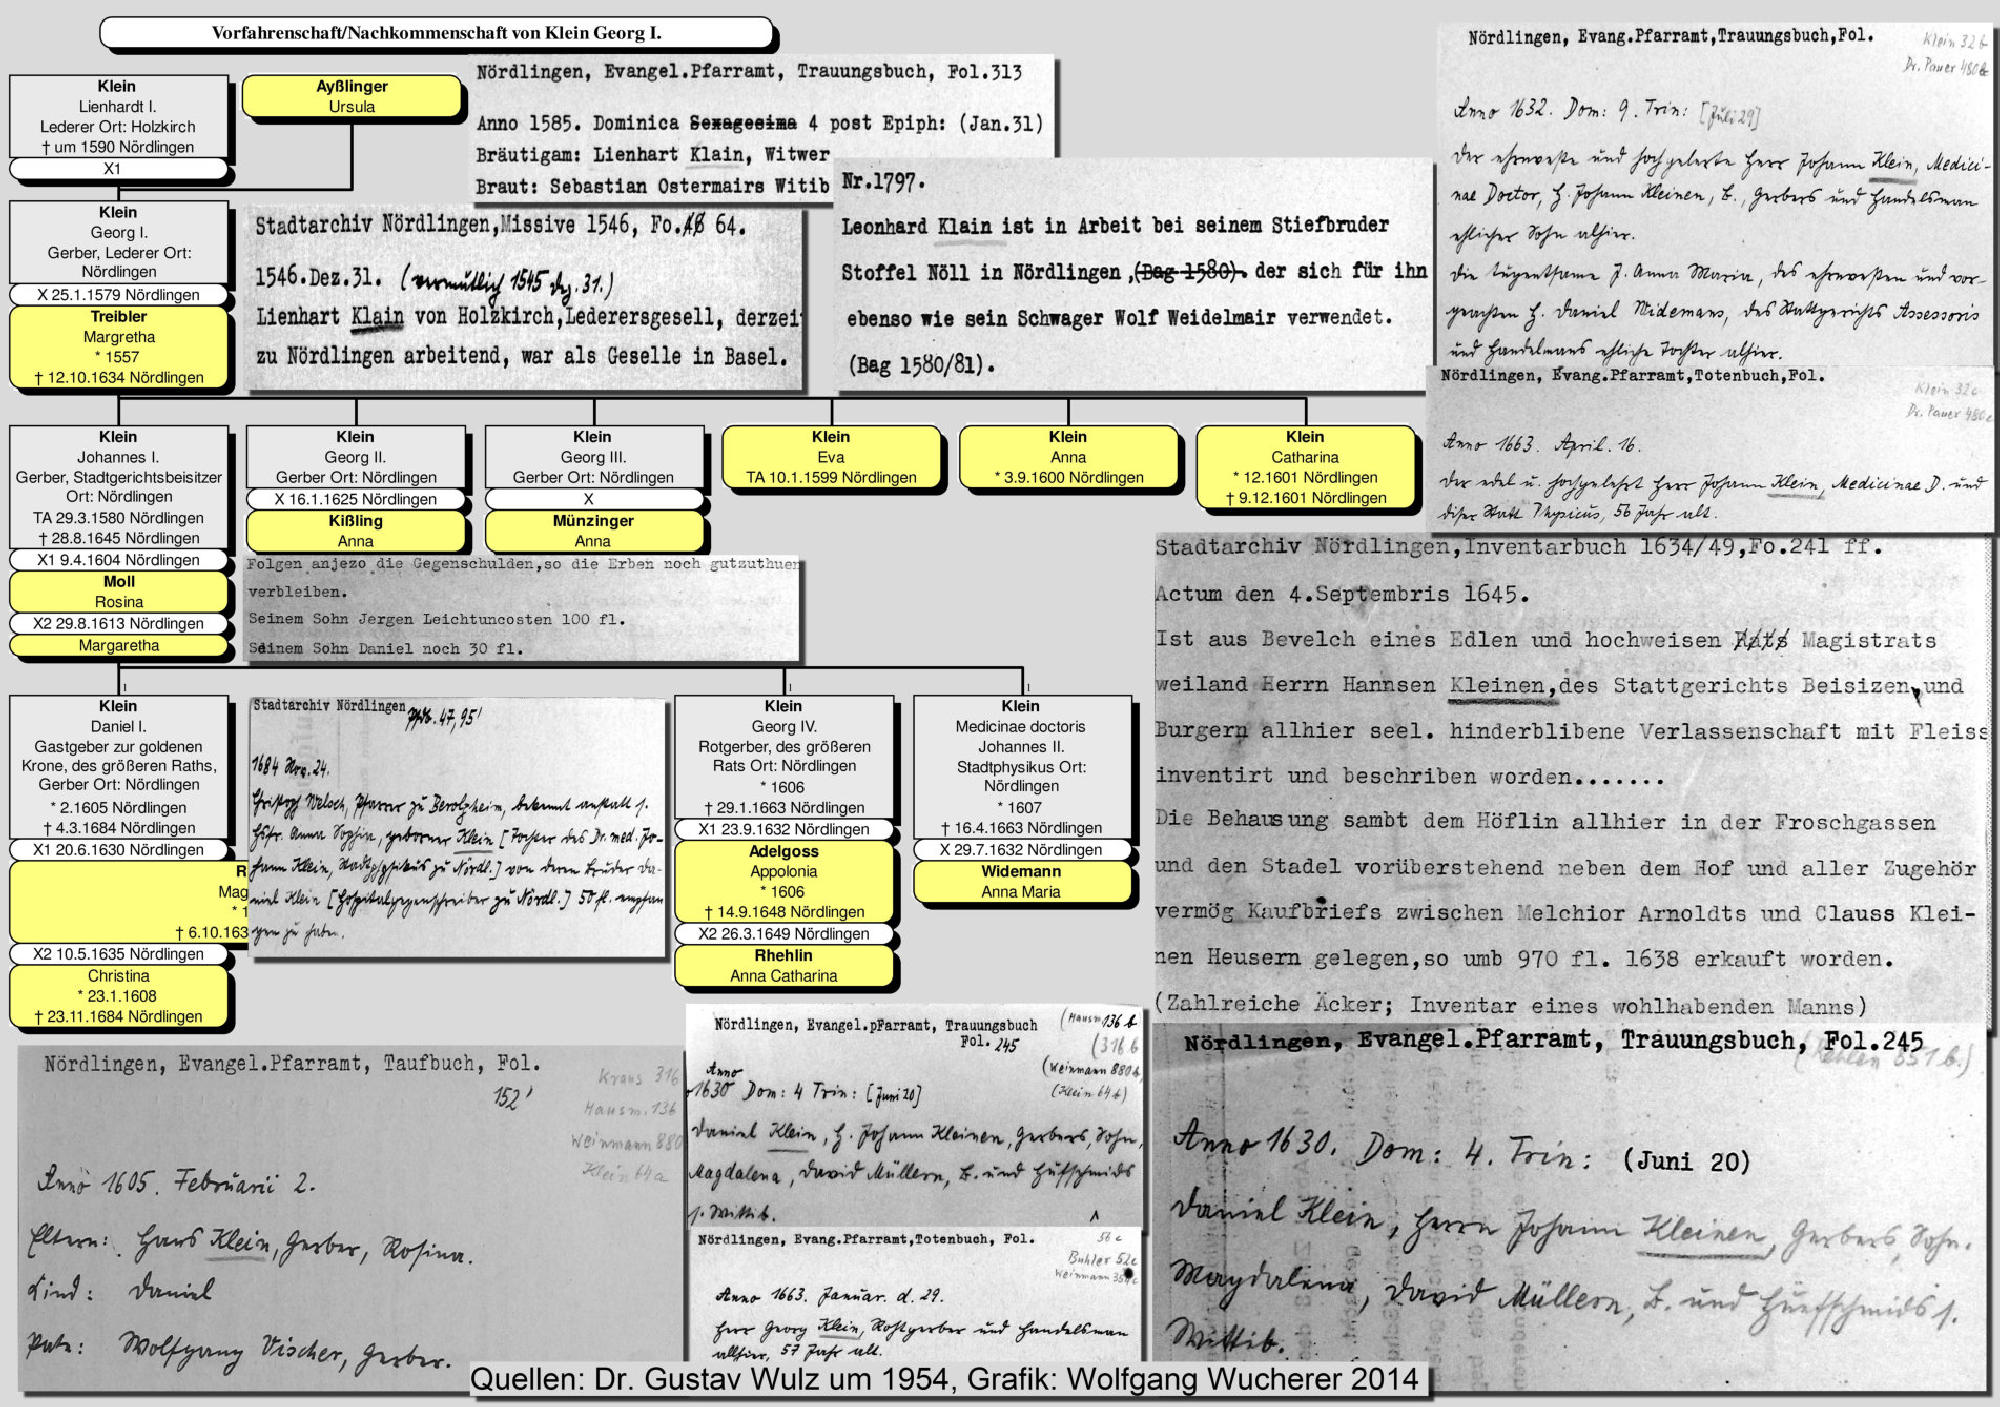 Vorfahrenschaft/Nachkommenschaft von Klein Georg I.
Klein
Lienhardt I.
Lederer Ort: Holzkirch
† um 1590 Nördlingen
X1
Ayßlinger
Ursula
Klein
Georg I.
Gerber, Lederer Ort:
Nördlingen
X 25.1.1579 Nördlingen
Treibler
Margretha
* 1557
† 12.10.1634 Nördlingen
Nördlingen, Evangel.Pfarramt, Trauungsbuch, Fol.313
Anno 1585. Dominica Sexagesima 4 post Epiph: (Jan.31)
Bräutigam: Lienhart Klain, Witwer
Braut: Sebastian Ostermairs Witib
Stadtarchiv Nördlingen,Missive 1546, Fo. 64.
1546.Dez.31. (vermutlich 1545 Dez. 31.)
Lienhart Klain von Holzkirch,Lederersgesell, derzeit
zu Nördlingen arbeitend, war als Geselle in Basel.
Nr.1797.
Leonhard Klain ist in Arbeit bei seinem Stiefbruder
Stoffel Nöll in Nördlingen ,(Bag 1580). der sich für ihn
ebenso wie sein Schwager Wolf Weidelmair verwendet.
(Bag 1580/81).
Nördlingen, Evang.Pfarramt,Trauungsbuch,Fol.
Klein 32 b
Dr. Pauer 480 b
Anno 1632. Dom: 9. Trin: [Juli 29]
Der ehrnveste und hochgelerte Herr Johann Klein, Medici-
nae Doctor, H. Johann Kleinen, B., Gerbers und Handelsman
ehlicher Sohn alhier.
Die tugentsame J. Anna Maria, des ehrnvesten und vor-
geachten H. Daniel Widemans, des Stattgerichts Assessoris
und Handelmans ehliche Tochter alhier.
Nördlingen, Evang.Pfarramt,Totenbuch,Fol.
Klein 32c
Dr. Pauer 480 c
Anno 1663. April. 16.
Der edel u. hochgelehrt Herr Johann Klein, Medicinae D. und
diser Statt Physicus, 56 Jahr alt.
Klein
Johannes I.
Gerber, Stadtgerichtsbeisitzer
Ort: Nördlingen
TA 29.3.1580 Nördlingen
† 28.8.1645 Nördlingen
X1 9.4.1604 Nördlingen
Moll
Rosina
X2 29.8.1613 Nördlingen
Margaretha
Klein
Georg II.
Gerber Ort: Nördlingen
X 16.1.1625 Nördlingen
Kißling
Anna
Klein
Georg III.
Gerber Ort: Nördlingen
X
Münzinger
Anna
Klein
Eva
TA 10.1.1599 Nördlingen
Klein
Anna
* 3.9.1600 Nördlingen
Klein
Catharina
* 12.1601 Nördlingen
† 9.12.1601 Nördlingen
Folgen anjezo die Gegenschulden,so die Erben noch gutzuthuen
verbleiben.
Seinem Sohn Jergen Leichtuncosten 100 fl.
Seinem Sohn Daniel noch 30 fl.
Stadtarchiv Nördlingen,Inventarbuch 1634/49,Fo.241 ff.
Actum den 4.Septembris 1645.
Ist aus Bevelch eines Edlen und hochweisen Rats Magistrats
weiland Herrn Hannsen Kleinen,des Stattgerichts Beisizen,und
Burgern allhier seel. hinderblibene Verlassenschaft mit Fleiss
inventirt und beschriben worden.......
Die Behausung sambt dem Höflin allhier in der Froschgassen
und den Stadel vorüberstehend neben dem Hof und aller Zugehör
vermög Kaufbriefs zwischen Melchior Arnoldts und Clauss Klei-
nen Heusern gelegen,so umb 970 fl. 1638 erkauft worden.
(Zahlreiche Äcker; Inventar eines wohlhabenden Manns)
Klein
Daniel I.
Gastgeber zur goldenen
Krone, des größeren Raths,
Gerber Ort: Nördlingen
* 2.1605 Nördlingen
† 4.3.1684 Nördlingen
X1 20.6.1630 Nördlingen
R
Mag
* 1
† 6.10.163
X2 10.5.1635 Nördlingen
Christina
* 23.1.1608
† 23.11.1684 Nördlingen
Stadtarchiv Nördlingen
47, 95'
1684 Nov. 24.
Christoph Welsch, Pfarrer zu Berolzheim, bekennt anstatt s.
Hsfr. Anna Sophia, geborner Klein [Tochter des Dr. med. Jo-
hann Klein, Stadtphysikus zu Nördl.] von deren Bruder Da-
niel Klein [Hospitalgegenschreiber zu Nördl.] 50 fl. empfan
gen zu haben.
Klein
Georg IV.
Rotgerber, des größeren
Rats Ort: Nördlingen
* 1606
† 29.1.1663 Nördlingen
X1 23.9.1632 Nördlingen
Adelgoss
Appolonia
* 1606
† 14.9.1648 Nördlingen
X2 26.3.1649 Nördlingen
Rhehlin
Anna Catharina
Klein
Medicinae doctoris
Johannes II.
Stadtphysikus Ort:
Nördlingen
* 1607
† 16.4.1663 Nördlingen
X 29.7.1632 Nördlingen
Widemann
Anna Maria
Nördlingen, Evangel.Pfarramt, Taufbuch, Fol.
152'
Kraus 316
Hausm. 136
Weinmann 880
Klein 64a
Anno 1605. Februarii 2.
Eltern: Hans Klein, Gerber, Rosina.
Kind: Daniel
Pate: Wolfgang Vischer, Gerber.
Nördlingen, Evangel.pFarramt, Trauungsbuch
Fol. 245
(Hausm 136 b
(316 b
(Weinmann 880b
(Klein 64 b)
Anno
1630 Dom: 4 Trin: [Juni 20]
Daniel Klein, H. Johann Kleinen, Gerbers, Sohn,
Magdalena, David Müllern, B. und Hufschmids
s. Wittib.
Nördlingen, Evang.Pfarramt,Totenbuch, Fol.
56 c
Buhler 52c
Weinmann
Anno 1663. Januar. d. 29.
Herr Georg Klein, Rohtgerber und Handelsman
allhier, 57 Jahr alt.
Nördlingen, Evangel.Pfarramt, Trauungsbuch, Fol.245
Anno 1630. Dom: 4. Trin: (Juni 20)
Daniel Klein, Herrn Johann Kleinen, Gerbers, Sohn.
Magdalena, David Müllern, B. und Huefschmids s.
Wittib.
Quellen: Dr. Gustav Wulz um 1954, Grafik: Wolfgang Wucherer 2014